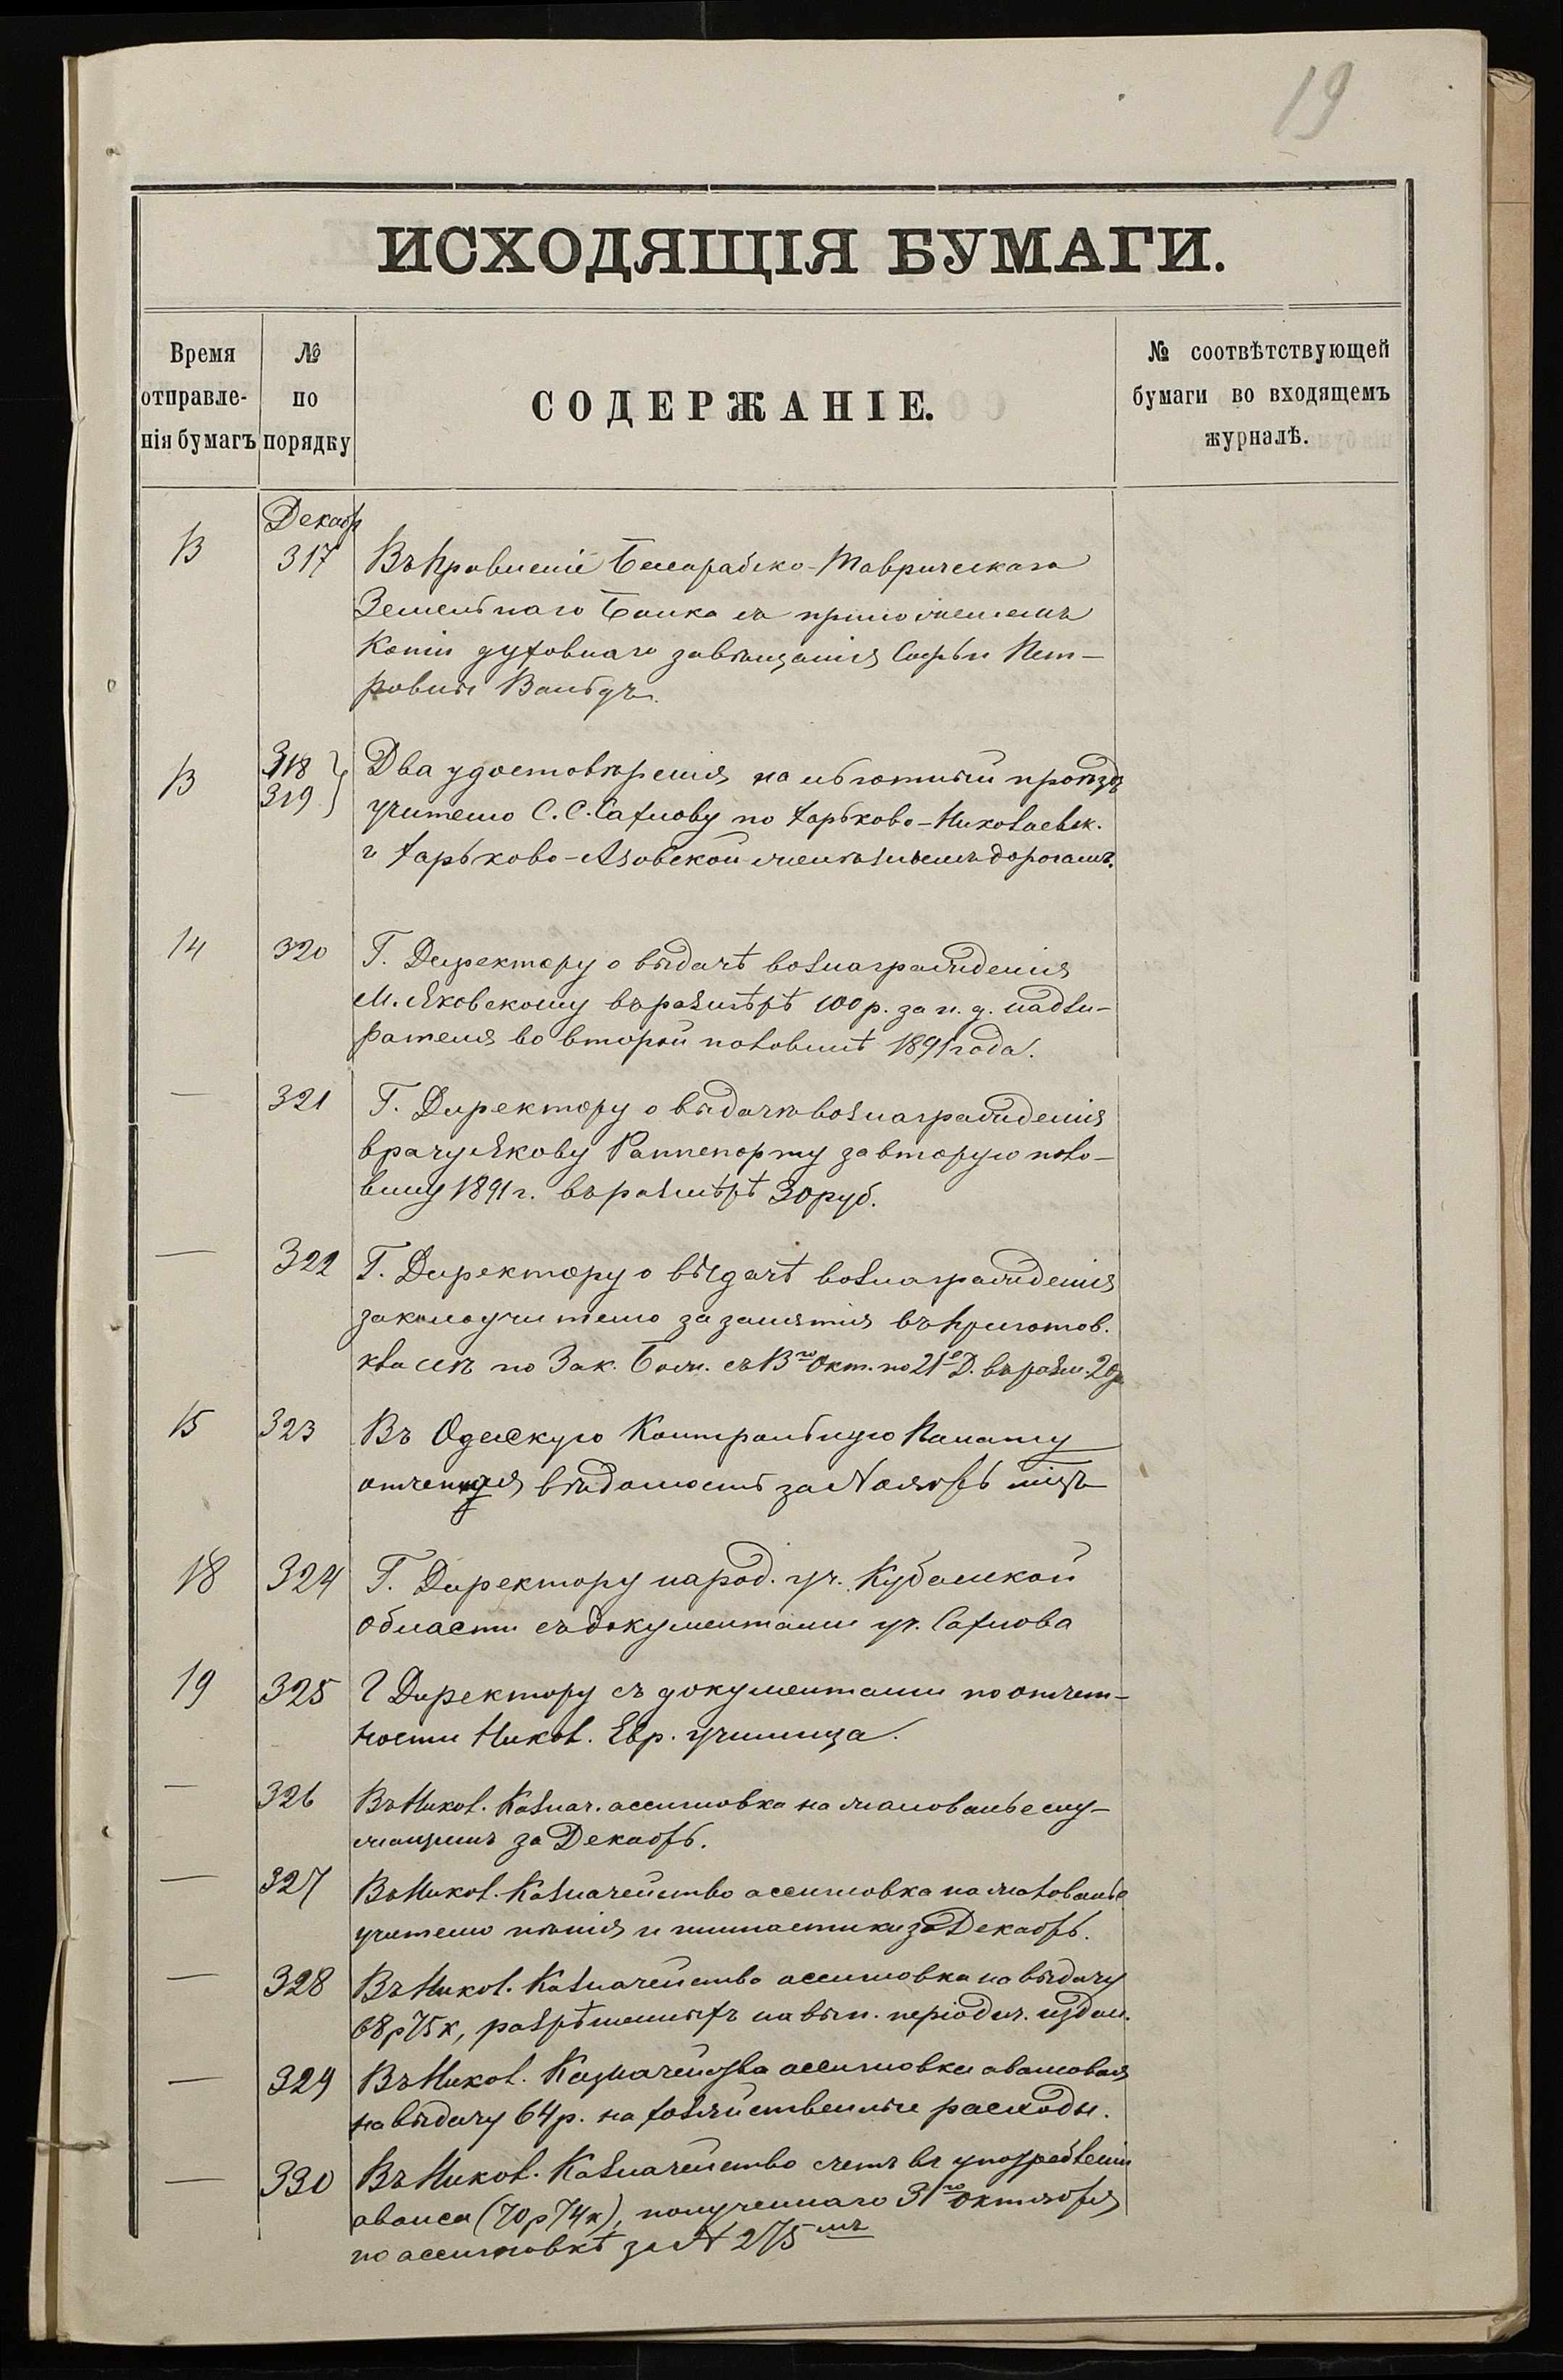 19
ИСХОДЯЩІЯ БУМАГИ.
Время отправле-нія бумагъ
№ по порядку
СОДЕРЖАНІЕ.
№ соотвѣтствующей бумаги во входящемъ журналѣ.
Декабр
13 317 Въ Правленіе Бессарабско-Таврическаго
Земельнаго Банка съ приложеніемъ
Копіи духовнаго завѣщанія Софьи Пет-
ровны
13 318 319 Два удостовѣренія на льготный проѣздъ
учителю С. С. Сахнову по Харьково-Николаевск.
и Харьково-Азовской желѣзнымъ дорогамъ.
14 320 Г. Директору о выдачѣ вознагражденія
М. Яковскому въ размѣрѣ 100 р. за и. д. надзи-
рателя во второй половинѣ 1891 года.
— 321 Г. Директору о выдачѣ вознагражденія
врачу Якову Раппепорту за вторую поло-
вину 1891 г. въ размѣрѣ 30 руб.
— 322 Г. Директору о выдачѣ вознагражденія
законоучителю за занятія въ Приготов.
классѣ по Зак. Бож. съ 13го Окт. по 21е Д. въ разм. 20р
15 323 Въ Одесскую Контрольную Палату
отчетная вѣдомость за Ноябрь мцъ
18 324 Г. Директору народ. уч. Кубанской
области съ документами уч. Сахнова
19 325 Г Директору съ документами по отчет-
ности Никол. Евр. училища.
— 326 Въ Никол. Казнач. ассигновка на жалованье слу-
жащимъ за Декабрь.
— 327 Въ Никол. Казначейство ассигновка на жалованье
учителю пѣнія и гимнастики за Декабрь.
— 328 Въ Никол. Казначейство ассигновка на выдачу
68р 75к, разрѣшенныхъ на вып. періодич. издан.
— 329 Въ Никол. Казначейство ассигновка авансовая
на выдачу 64 р. на хозяйственные расходы.
— 330 Въ Никол. Казначейство счетъ въ употребленіи
аванса (70р 74к), полученнаго 31го Октября
по ассигновкѣ за № 275мъ